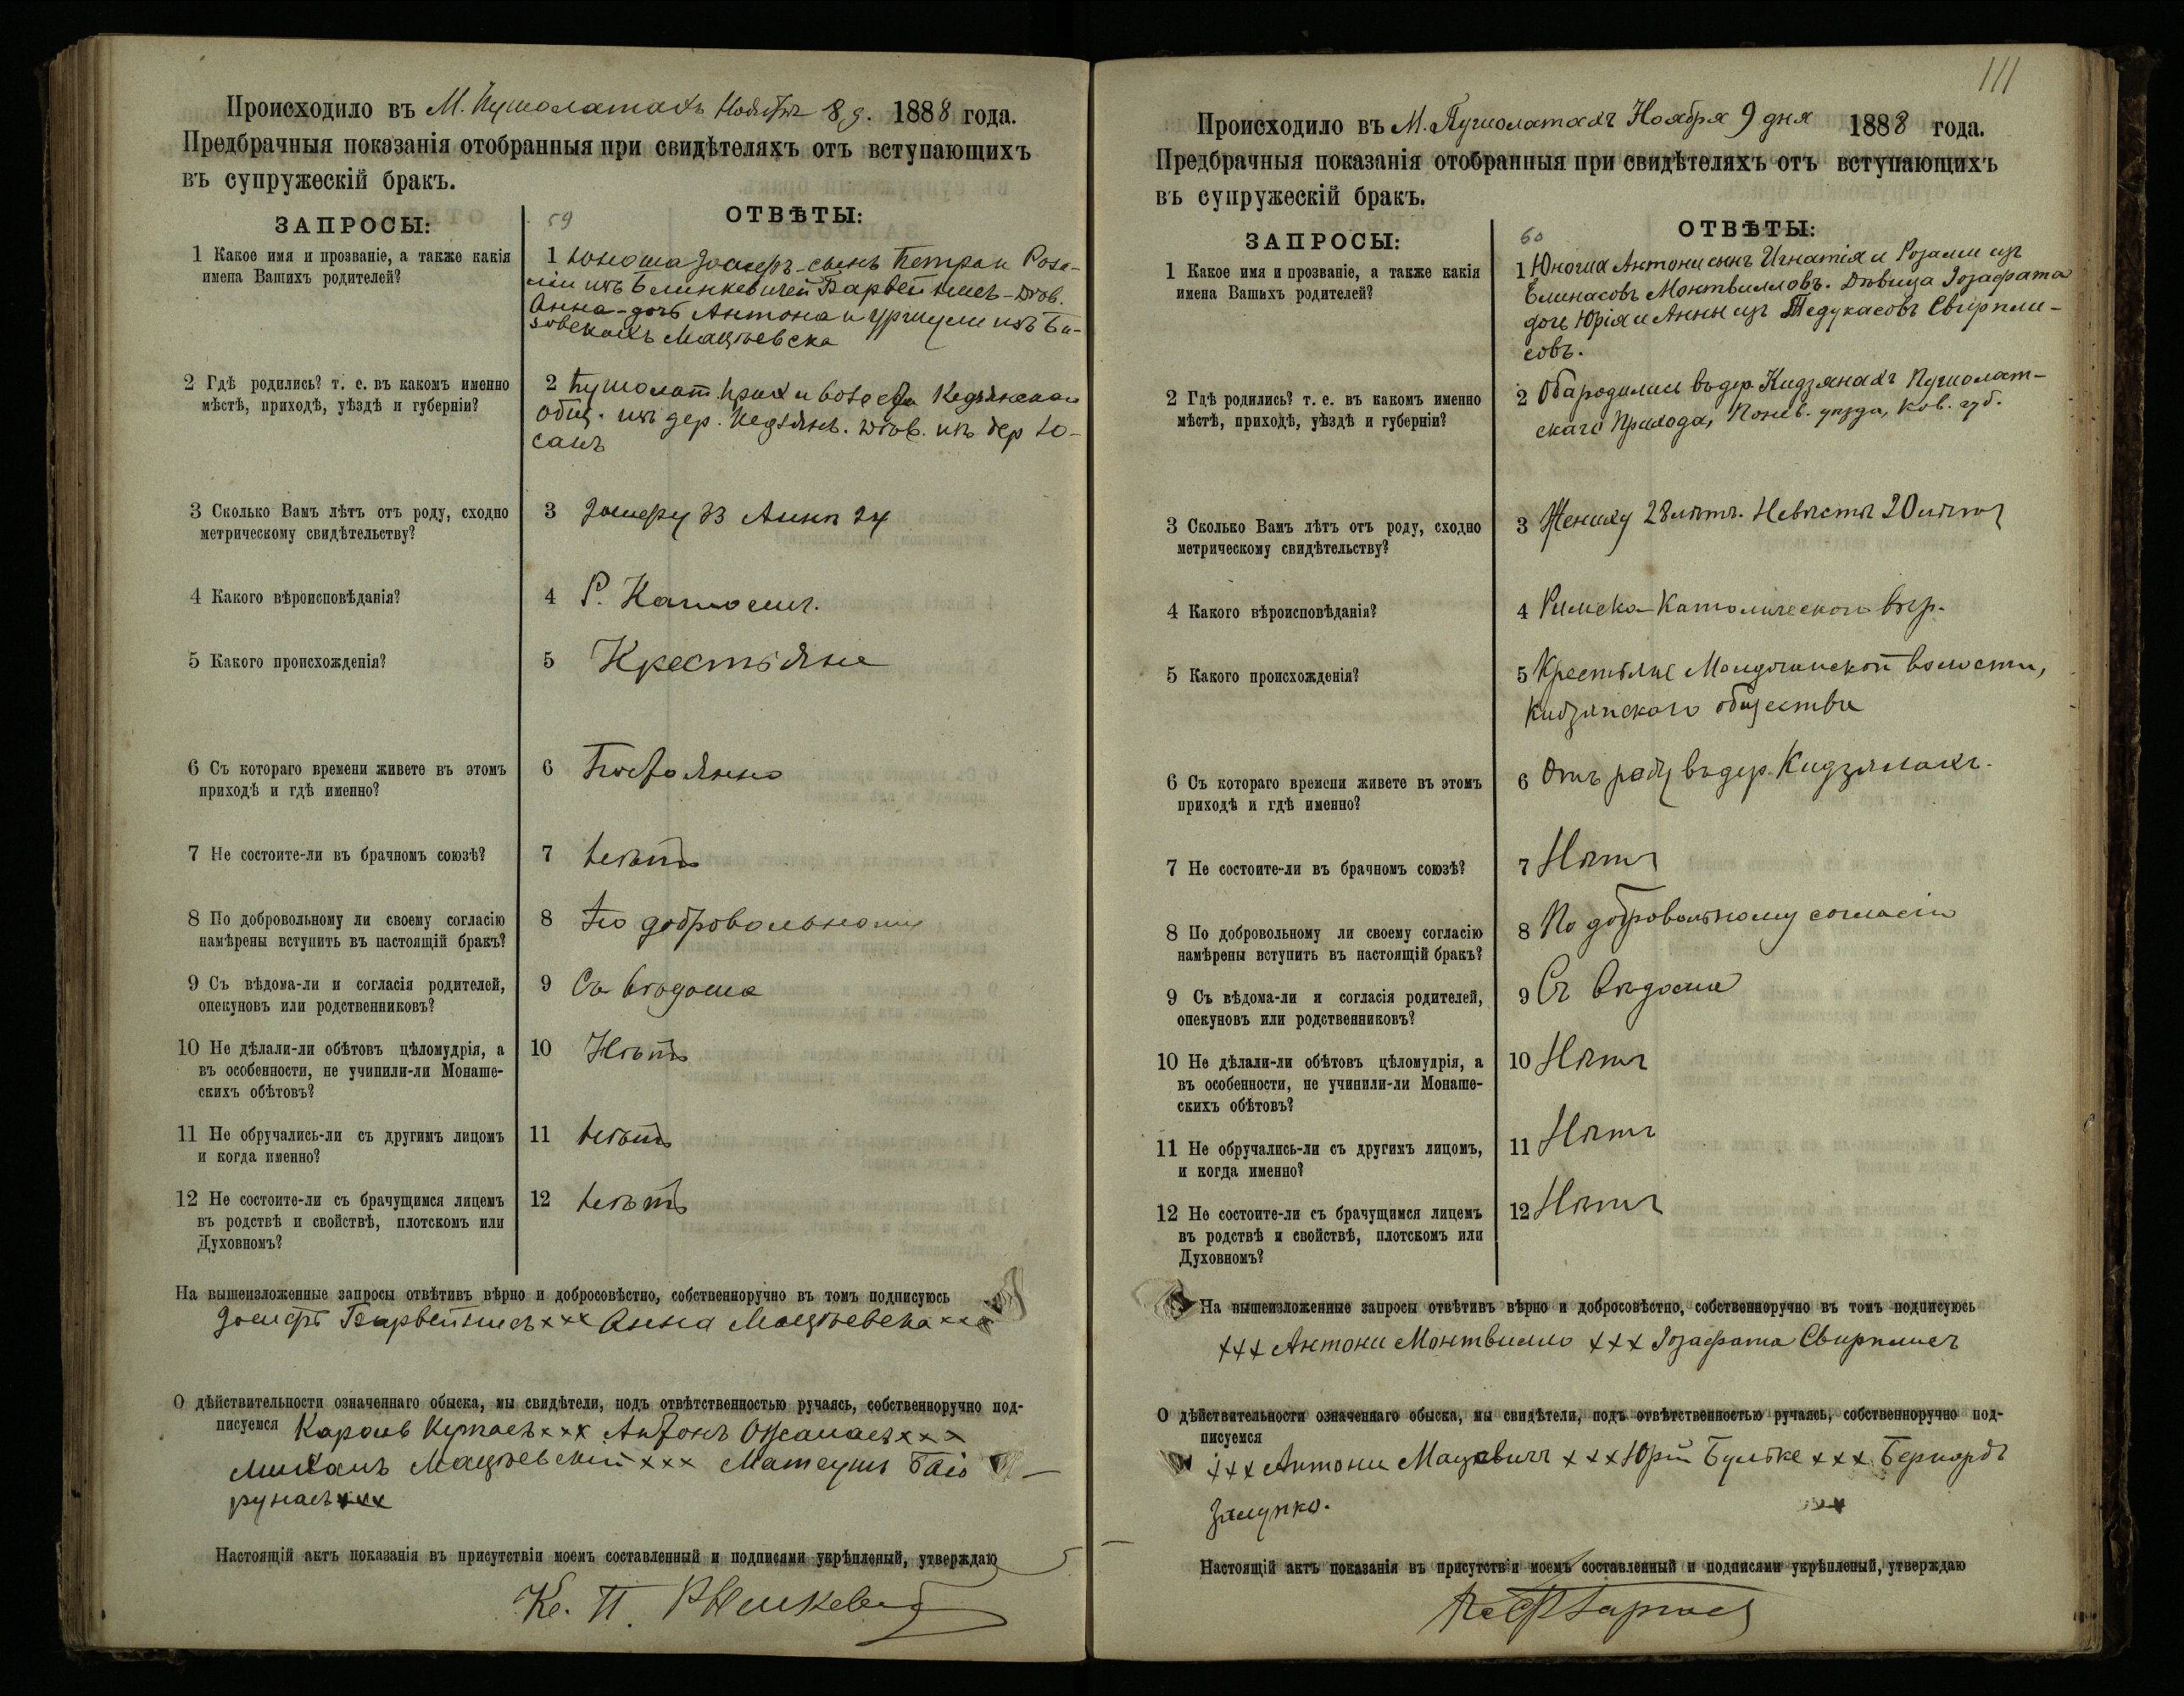 Происходило въ М. Пушолатахъ Ноября 8 д. 1888 года.
Предбрачныя показанія отобранныя при свидѣтеляхъ отъ вступающихъ
въ супружескій бракъ.
ЗАПРОСЫ:
59
ОТВѢТЫ:
1 Какое имя и прозваніе, а также какія
имена Вашихъ родителей?
1 Юноша Іосифъ - сынъ Петра и Роза-
ліи изъ Блинкевичей - дѣв.
Анна - дочь Антона и Уршули изъ
Мацѣевска
2 Гдѣ родились? т. е. въ какомъ именно
мѣстѣ, приходѣ, уѣздѣ и губерніи?
2 Пушолат. прих. и
Общ. изъ дер. дѣв. изъ дер Ю-
санъ
3 Сколько Вамъ лѣтъ отъ роду, сходно
метрическому свидѣтельству?
3 Іосифу 33 Аннѣ 24
4 Какого вѣроисповѣданія?
4 Р. Католич.
5 Какого происхожденія?
5 Крестьяне
6 Съ котораго времени живете въ этомъ
приходѣ и гдѣ именно?
6 Постоянно
7 Не состоите-ли въ брачномъ союзѣ?
7 Нѣтъ
8 По добровольному ли своему согласію
намѣрены вступить въ настоящій бракъ?
8 По добровольному
9 Съ вѣдома-ли и согласія родителей,
опекуновъ или родственниковъ?
9 Съ вѣдома
10 Не дѣлали-ли обѣтовъ цѣломудрія, а
въ особенности, не учинили-ли Монаше-
скихъ обѣтовъ?
10 Нѣтъ
11 Не обручались-ли съ другимъ лицомъ
и когда именно?
11 Нѣтъ
12 Не состоите-ли съ брачущимся лицемъ
въ родствѣ и свойствѣ, плотскомъ или
Духовномъ?
12 Нѣтъ
На вышеизложенные запросы отвѣтивъ вѣрно и добросовѣстно, собственноручно въ томъ подписуюсь
Іосифъ xxx Анна Мацѣевска xxx
О дѣйствительности означеннаго обыска, мы свидѣтели, подъ отвѣтственностью ручаясь, собственноручно под-
писуемся Кароль xxx Антонъ xxx
Михаилъ Мацѣевскій xxx Матеушъ
xxx
Настоящій актъ показанія въ присутствіи моемъ составленный и подписями укрѣпленый, утверждаю
Кс. П.
111
Происходило въ М. Пушолатахъ Ноября 9 дня 1888 года.
Предбрачныя показанія отобранныя при свидѣтеляхъ отъ вступающихъ
въ супружескій бракъ.
ЗАПРОСЫ:
60
ОТВѢТЫ:
1 Какое имя и прозваніе, а также какія
имена Вашихъ родителей?
1 Юноша Антони сынъ Игнатія и Розаліи изъ
Блинасовъ Монтвилловъ. Дѣвица Іозафата
дочь Юрія и Анны изъ Тедукасовъ Свирпли-
совъ.
2 Гдѣ родились? т. е. въ какомъ именно
мѣстѣ, приходѣ, уѣздѣ и губерніи?
2 Оба родились въ дер. Кидзянахъ Пушолат-
скаго Прихода, Понев. уѣзда, Ков. губ.
3 Сколько Вамъ лѣтъ отъ роду, сходно
метрическому свидѣтельству?
3 Жениху 28 лѣтъ. Невѣстѣ 20 лѣтъ
4 Какого вѣроисповѣданія?
4 Римско-Католическаго вѣр.
5 Какого происхожденія?
5 Крестьяне волости,
Кидзянскаго общества
6 Съ котораго времени живете въ этомъ
приходѣ и гдѣ именно?
6 Отъ роду въ дер. Кидзянахъ.
7 Не состоите-ли въ брачномъ союзѣ?
7 Нѣтъ
8 По добровольному ли своему согласію
намѣрены вступить въ настоящій бракъ?
8 По добровольному согласію
9 Съ вѣдома-ли и согласія родителей,
опекуновъ или родственниковъ?
9 Съ вѣдома
10 Не дѣлали-ли обѣтовъ цѣломудрія, а
въ особенности, не учинили-ли Монаше-
скихъ обѣтовъ?
10 Нѣтъ
11 Не обручались-ли съ другихъ лицомъ,
и когда именно?
11 Нѣтъ
12 Не состоите-ли съ брачущимся лицемъ
въ родствѣ и свойствѣ, плотскомъ или
Духовномъ?
12 Нѣтъ
На вышеизложенные запросы отвѣтивъ вѣрно и добросовѣстно, собственноручно въ томъ подписуюсь
xxx Антони Монтвилло xxx Іозафата Свирплисъ
О дѣйствительности означеннаго обыска, мы свидѣтели, подъ отвѣтственностью ручаясь, собственноручно под-
писуемся
xxx Антони Мацкевичъ xxx Юрій Бутке xxx Бернардъ
Залупко.
Настоящій актъ показанія въ присутствіи моемъ составленный и подписями укрѣпленый, утверждаю